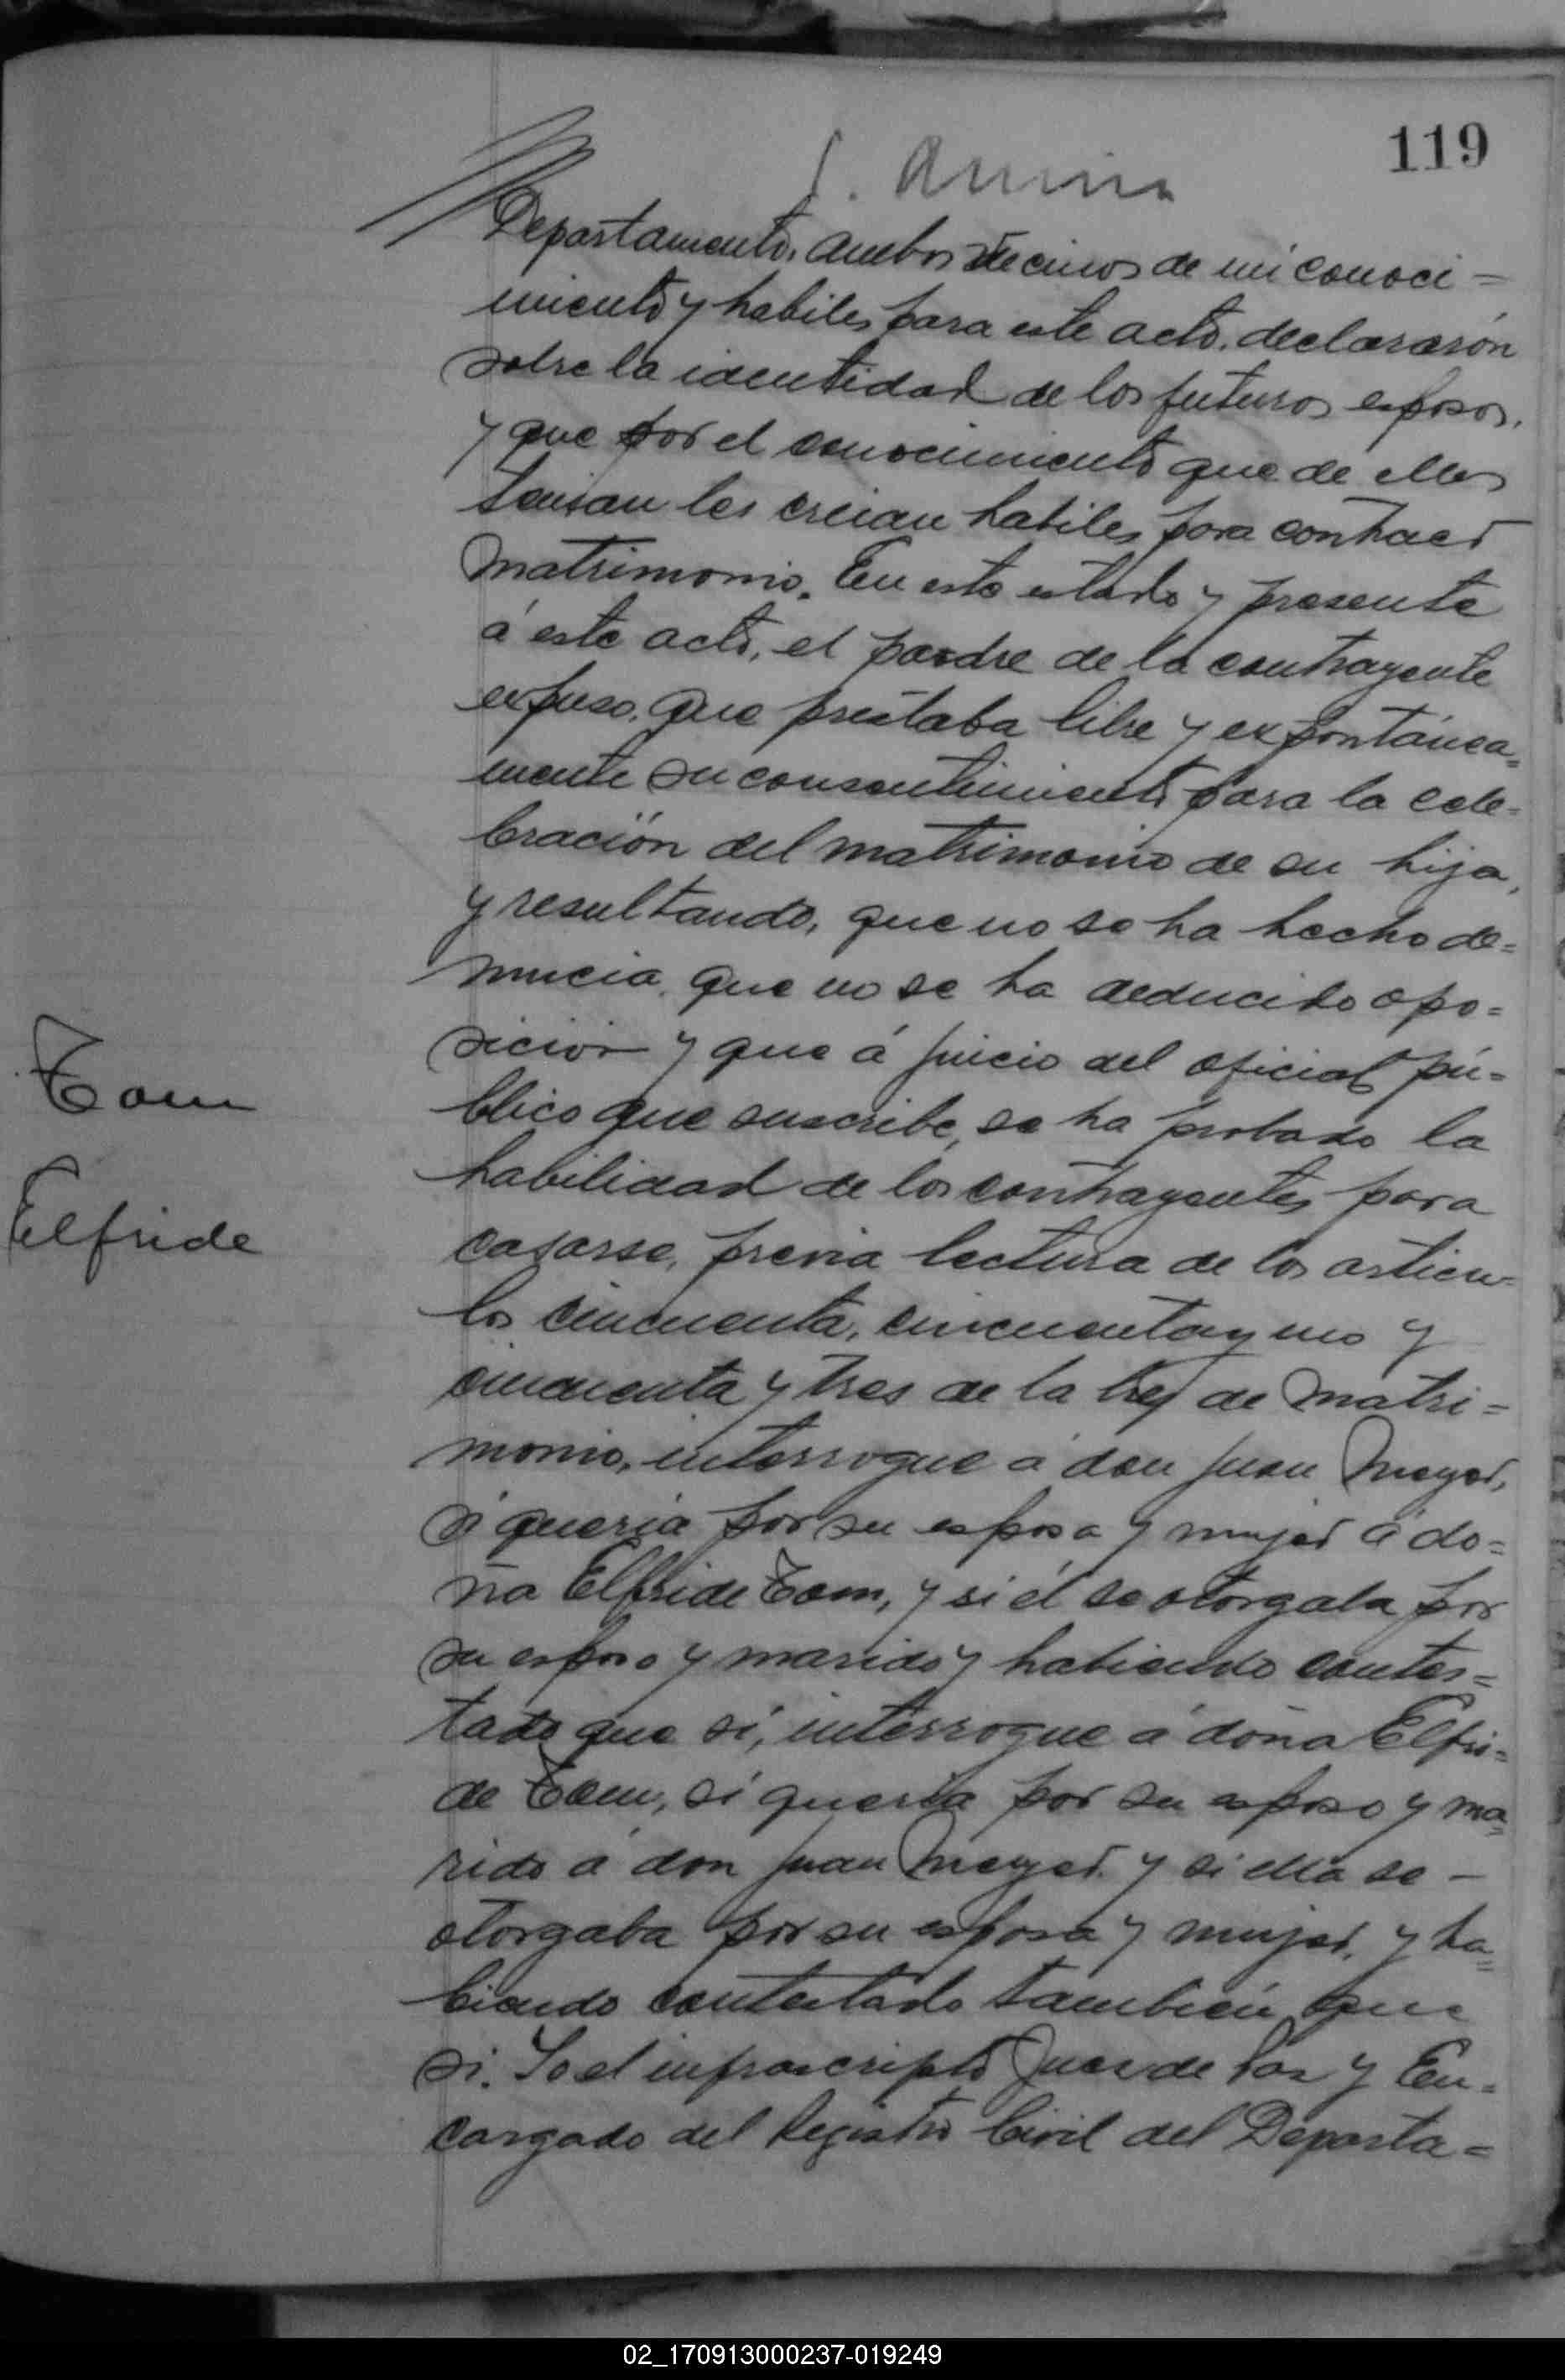 119
Departamento, ambos vecinos de mi conoci=
miento y habiles para este acto, declararón
sobre la identidad de los futuros esposos,
y que por el conocimiento que de ellos
tenian les creian habiles para contraer
matrimonio. En este estado y presente
á este acto, el padre de la contrayente
expuso, que prestaba libre y expontánea=
mente su consentimiento para la cele=
bración del matrimonio de su hija,
y resultando, que no se ha hecho de=
nuncia, que no se ha deducido opo=
sicion y que á juicio del oficial pú=
blico que suscribe, se ha probado la
habilidad de los contrayentes para
casarse, previa lectura de los articu=
los cincuenta, cincuenta y uno y
cincuenta y tres de la ley de matri=
monio, interrogue á don Juan Meyer,
si queria por su esposa y mujer á do=
ña Elfride Tom, y si él se otorgaba por
su esposo y marido y habiendo contes=
tado que sí, interrogue á doña Elfri=
de Tom, si queria por su esposo y ma=
rido á don Juan Meyer y si ella se -
otorgaba por su esposa y mujer, y ha=
biendo contestado también que
si. Yo el infrascripto Juez de Paz y En=
cargado del Registro Civil del Departa=
Tom
Elfride
02_170913000237-019249